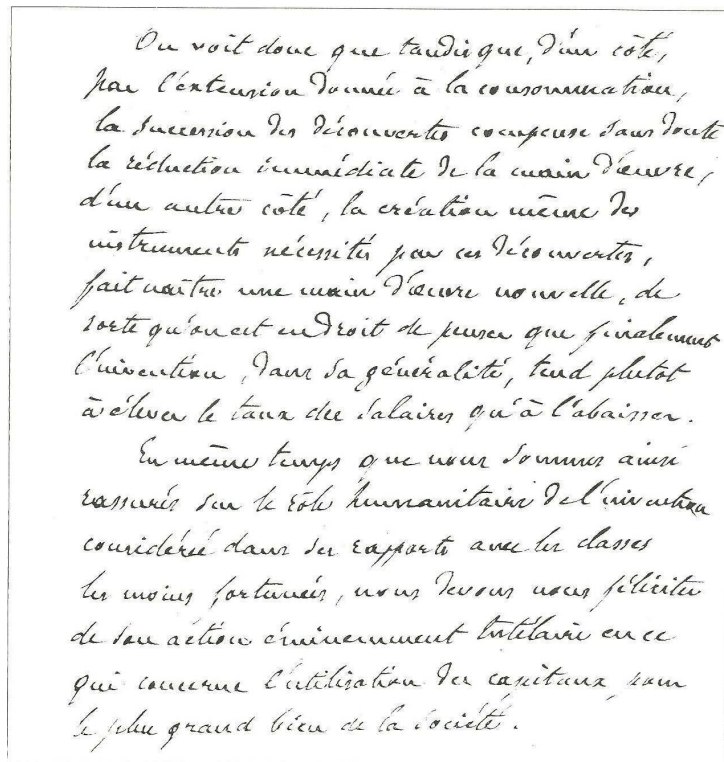 On voit donc que tandis que, d'un côté,
par l'extension donnée à la consommation,
la succession des découvertes compense sans doute
la réduction immédiate de la main d'œuvre,
d'un autre côté, la création même des
instruments nécessités par ces découvertes,
fait naître une main d'œuvre nouvelle, de
sorte qu'on est en droit de penser que finalement
l'invention, dans sa généralité, tend plutôt
à élever le taux des salaires qu'à l'abaisser.
En même temps que nous sommes ainsi
rassurés sur le rôle humanitaire de l'invention
considérée dans ses rapports avec les classes
les moins fortunées, nous devons nous féliciter
de son action éminemment tutélaire en ce
qui concerne l'utilisation des capitaux pour
le plus grand bien de la société.